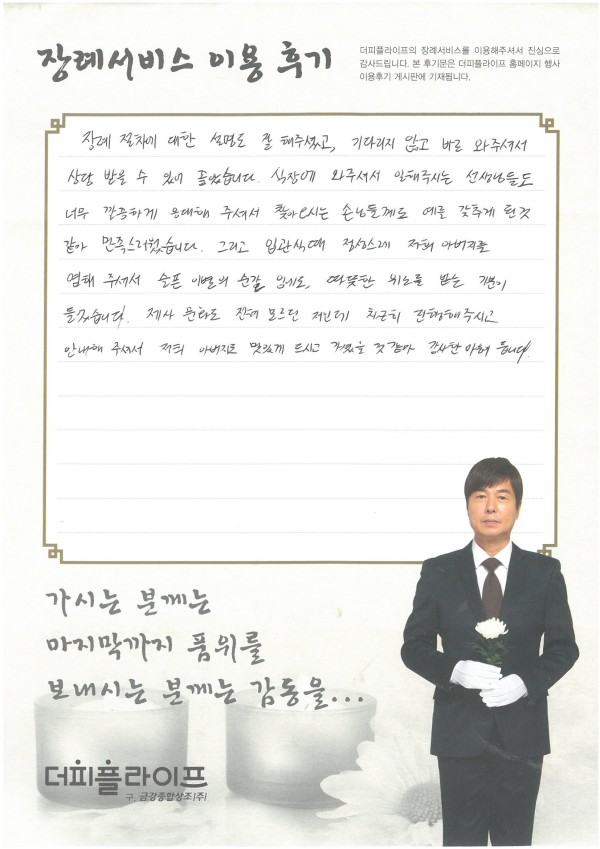 장례서비스 이용 후기
더피플라이프의 장례서비스를 이용해주셔서 진심으로
감사드립니다. 본 후기문은 더피플라이프 홈페이지 행사
이용후기 게시판에 기재됩니다.
장례 절차에 대한 설명도 잘 해주셨고, 기다리지 않고 바로 와주셔서
상담 받을 수 있어 좋았습니다. 식장에 와주셔서 일해주시는 선생님들도
너무 깔끔하게 응대해 주셔서 찾아오시는 손님들께도 예를 갖추게 된것
같아 만족스러웠습니다. 그리고 입관식때 정성스레 저희 아버지를
염해 주셔서 슬픈 이별의 순간 임에도, 따뜻한 위로를 받는 기분이
들었습니다. 제사 문화도 전혀 모르던 저인데 차근히 진행해주시고
안내해 주셔서 저희 아버지도 맛있게 드시고 가셨을 것 같아 감사한 마음 듭니다.
가시는 분께는
마지막까지 품위를
보내시는 분께는 감동을...
더피플라이프
구. 금강종합상조(주)